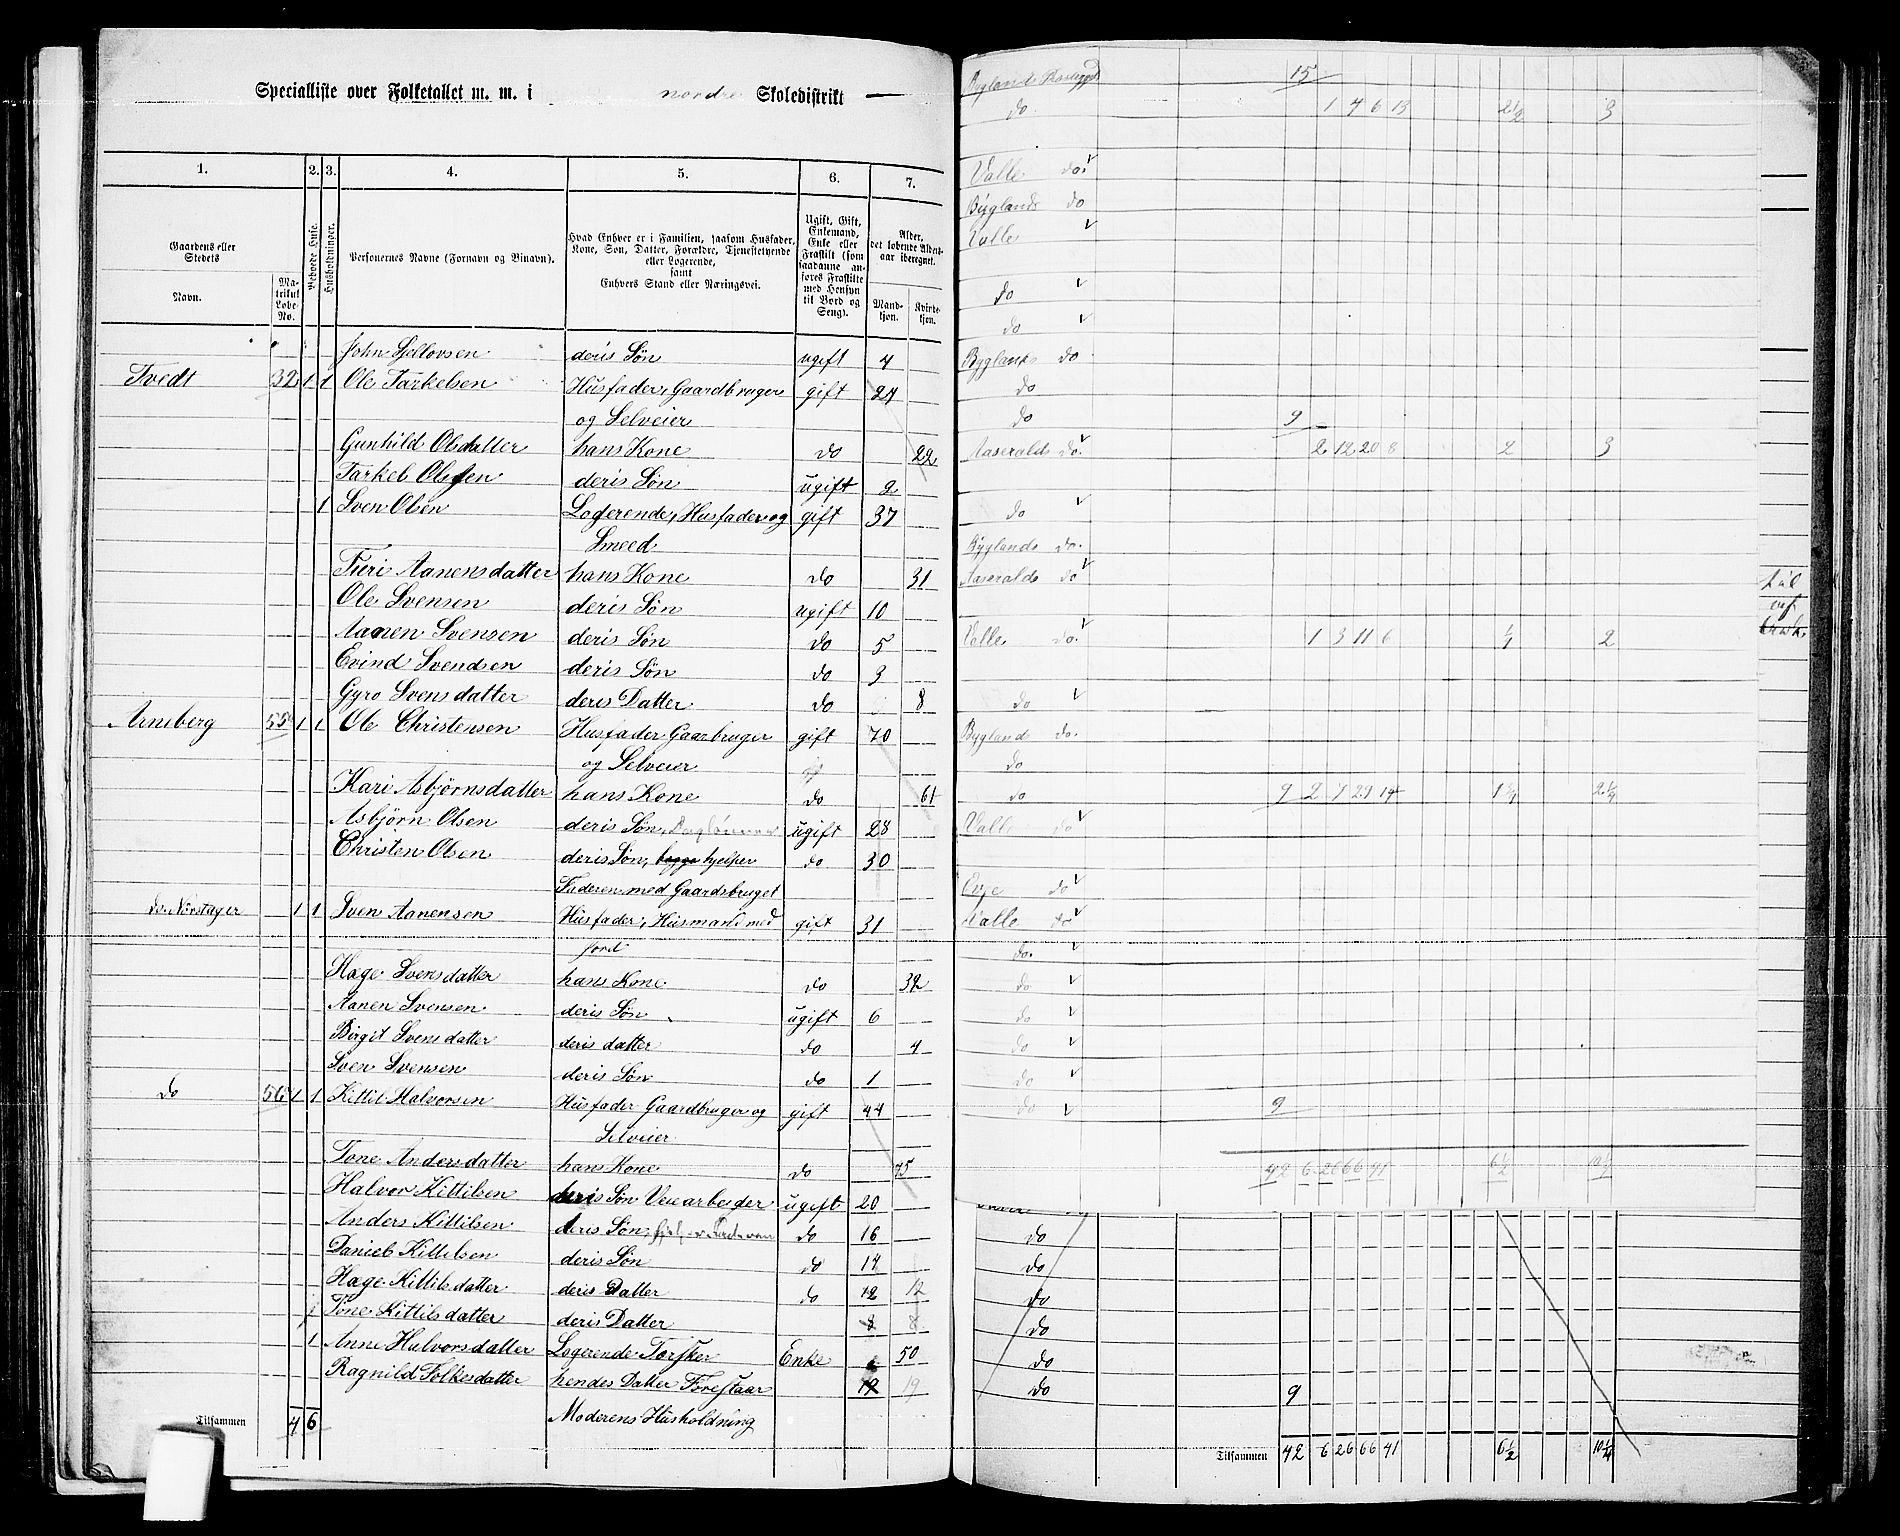 Specialliste over Folketallet m. m. i nordre Skoledistrikt
1. 2. 3. 4. 5. 6. 7.
Gaardens eller Stedets Navn. Matrikul Løbe-No. Beboede Huse. Husholdninger. Personernes Navne (Fornavn og Vinavn). Hvad Enhver er i Familien, saasom Husfader, Kone, Søn, Datter, Forældre, Tjenestetyende eller Logerende, samt Enhvers Stand eller Næringsvei. Ugift, Gift, Enkemand, Enke eller Fraskilt (som saadanne anføres Fraskilte med Hensyn til Bord og Seng). Alder, det løbende Alders-aar iberegnet. Mandkjøn. Kvindekjøn.
John Sjellovsen deris Søn ugift 4
Tvedt 32 1 1 Ole Tarkelsen Husfader, Gaardbruger gift 24
og Selveier
Gunhild Olsdatter hans Kone do 22
Tarkel Olssen deris Søn ugift 2
1 Sven Olsen Logerende, Husfader og gift 37
Smeed
Turi Aanensdatter hans Kone do 31
Ole Svensen deris Søn ugift 10
Aanen Svensen deris Søn do 5
Evind Svendsen deris Søn do 3
Gyro Svensdatter deris Datter do 8
Arneberg 55 1 1 Ole Christensen Husfader Gaarbruger gift 70
og Selveier
Kari Asbjørnsdatter hans Kone do 61
Asbjørn Olsen deris Søn, ugift 28
Christen Olsen deris Søn, begge hjelper do 30
Faderen med Gaardsbruget
do. Norstager 1 1 Sven Aanensen Husfader, Husmand med gift 31
jord
Hage Svensdatter hans Kone do 32
Aanen Svensen deris Søn ugift 6
Birgit Svensdatter deris datter do 4
Sven Svensen deris Søn do 1
do 56 1 1 Kittil Halvorsen Husfader Gaardbruger og gift 44
Selveier
Tone Andersdatter hans Kone do 45
Halvor Kittilsen deris Søn Veiearbeider ugift 20
Anders Kittilsen deris Søn, do 16
Daniel Kittilsen deris Søn do 14
Hage Kittilsdatter deris Datter do 12 12
Tone Kittilsdatter deris Datter 8 8
1 Anne Halvorsdatter Logerende Torsker Enke 50
Ragnild Folkesdatter hendes Datter Forestaar 19 19
Moderens Husholdning
Tilsammen 4 6
Byglands Præstegjeld 15
do 1 4 6 13 2½ 3
Valle do.
Byglands do
Valle
do
do
Byglands do
do
do 9
Aaseralds do. 2 12 20 8 2 3
do
Byglands do.
Aaseralds do
Valle do. 1 3 11 6 2
do
Bygland do.
do
do 9 2 29 14
Valle do
Evje do
Valle do
do.
do
do
do
do
do 9
42 6 26 66 41 6½ 10¼
do
do
do
do
do
do 9
Tilsammen 42 6 26 66 41 6½ 10¼